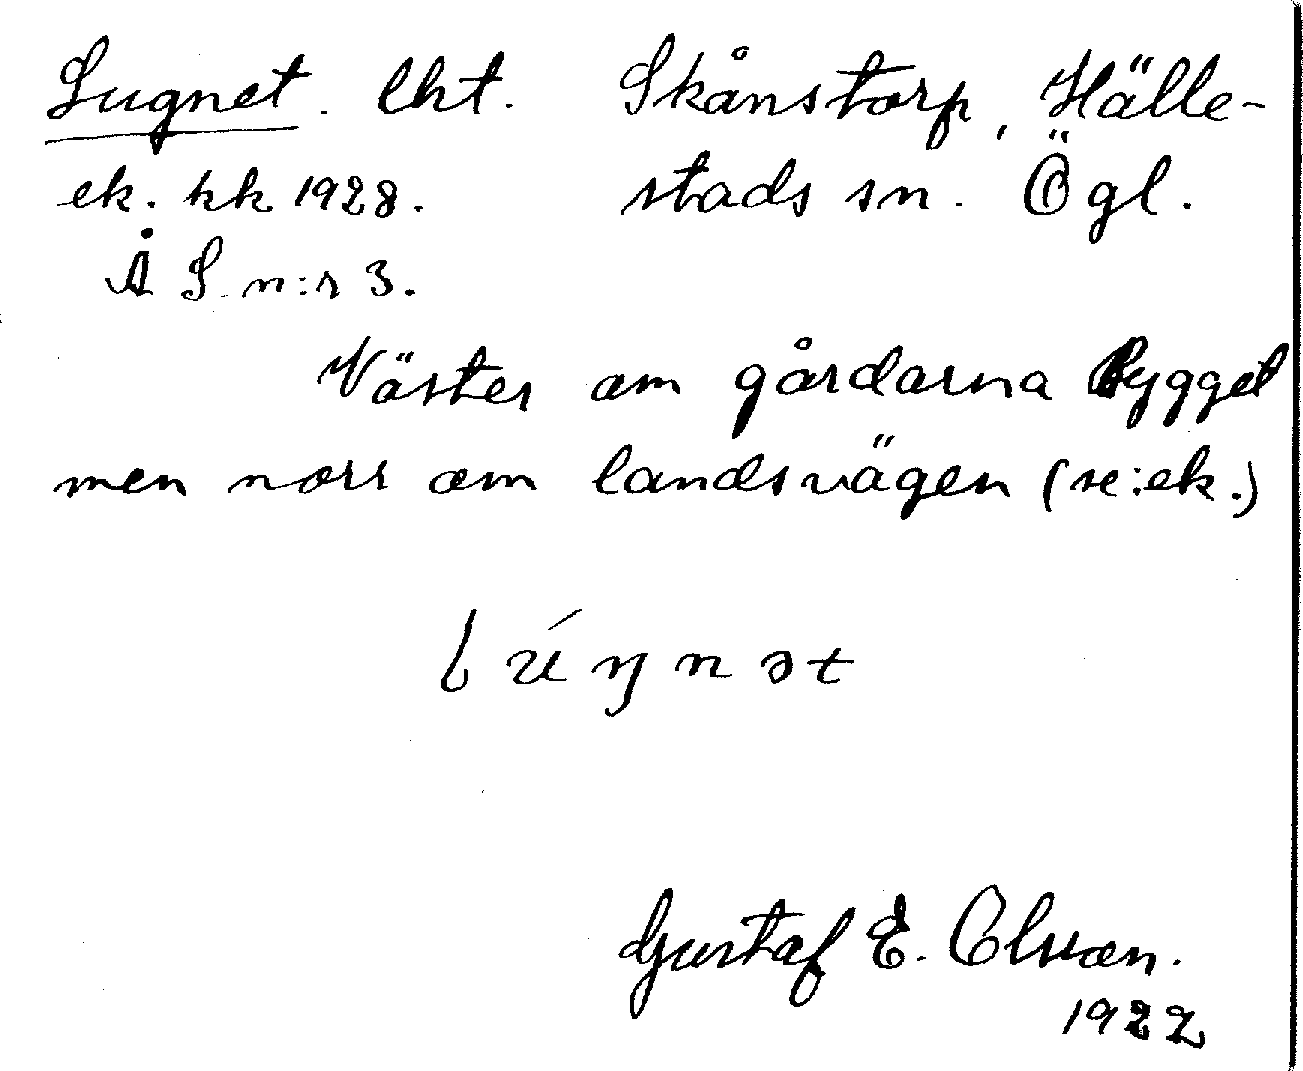 Lugnet. lht. Skånstorp, Hälle-
ek. hk 1928. stads sn. Ögl.
Å S. n:r 3.
Väster om gårdarna Bygget
men norr om landsvägen (se: ek.)
Gustaf E. Olson.
1922